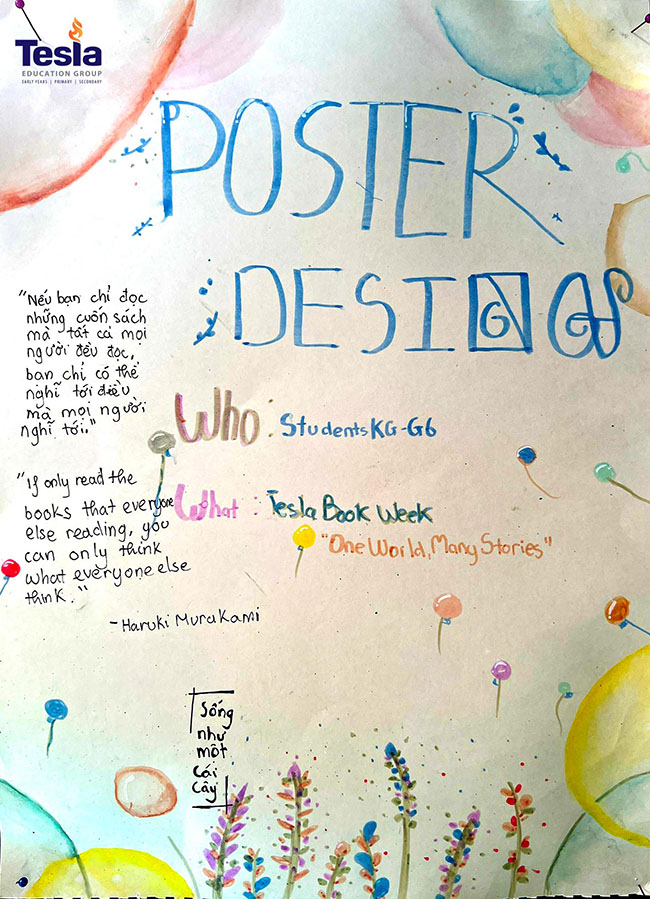 Tesla
EDUCATION GROUP
EARLY YEARS | PRIMARY | SECONDARY
POSTER
DESIGN
"Nếu bạn chỉ đọc
những cuốn sách
mà tất cả mọi
người đều đọc,
bạn chỉ có thể
nghĩ tới điều
mà mọi người
nghĩ tới."
Who: Students KG-G6
"If only read the
books that everyone
else reading, you
can only think
what everyone else
think."
- Haruki Murakami
What: Tesla Book Week
"One World, Many Stories"
Sống
như
một
cái
cây